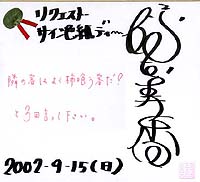 リクエスト
サイン色紙デー
隣の客はよく柿喰う客だ?
と3回言って下さい。
2002-9-15(日)